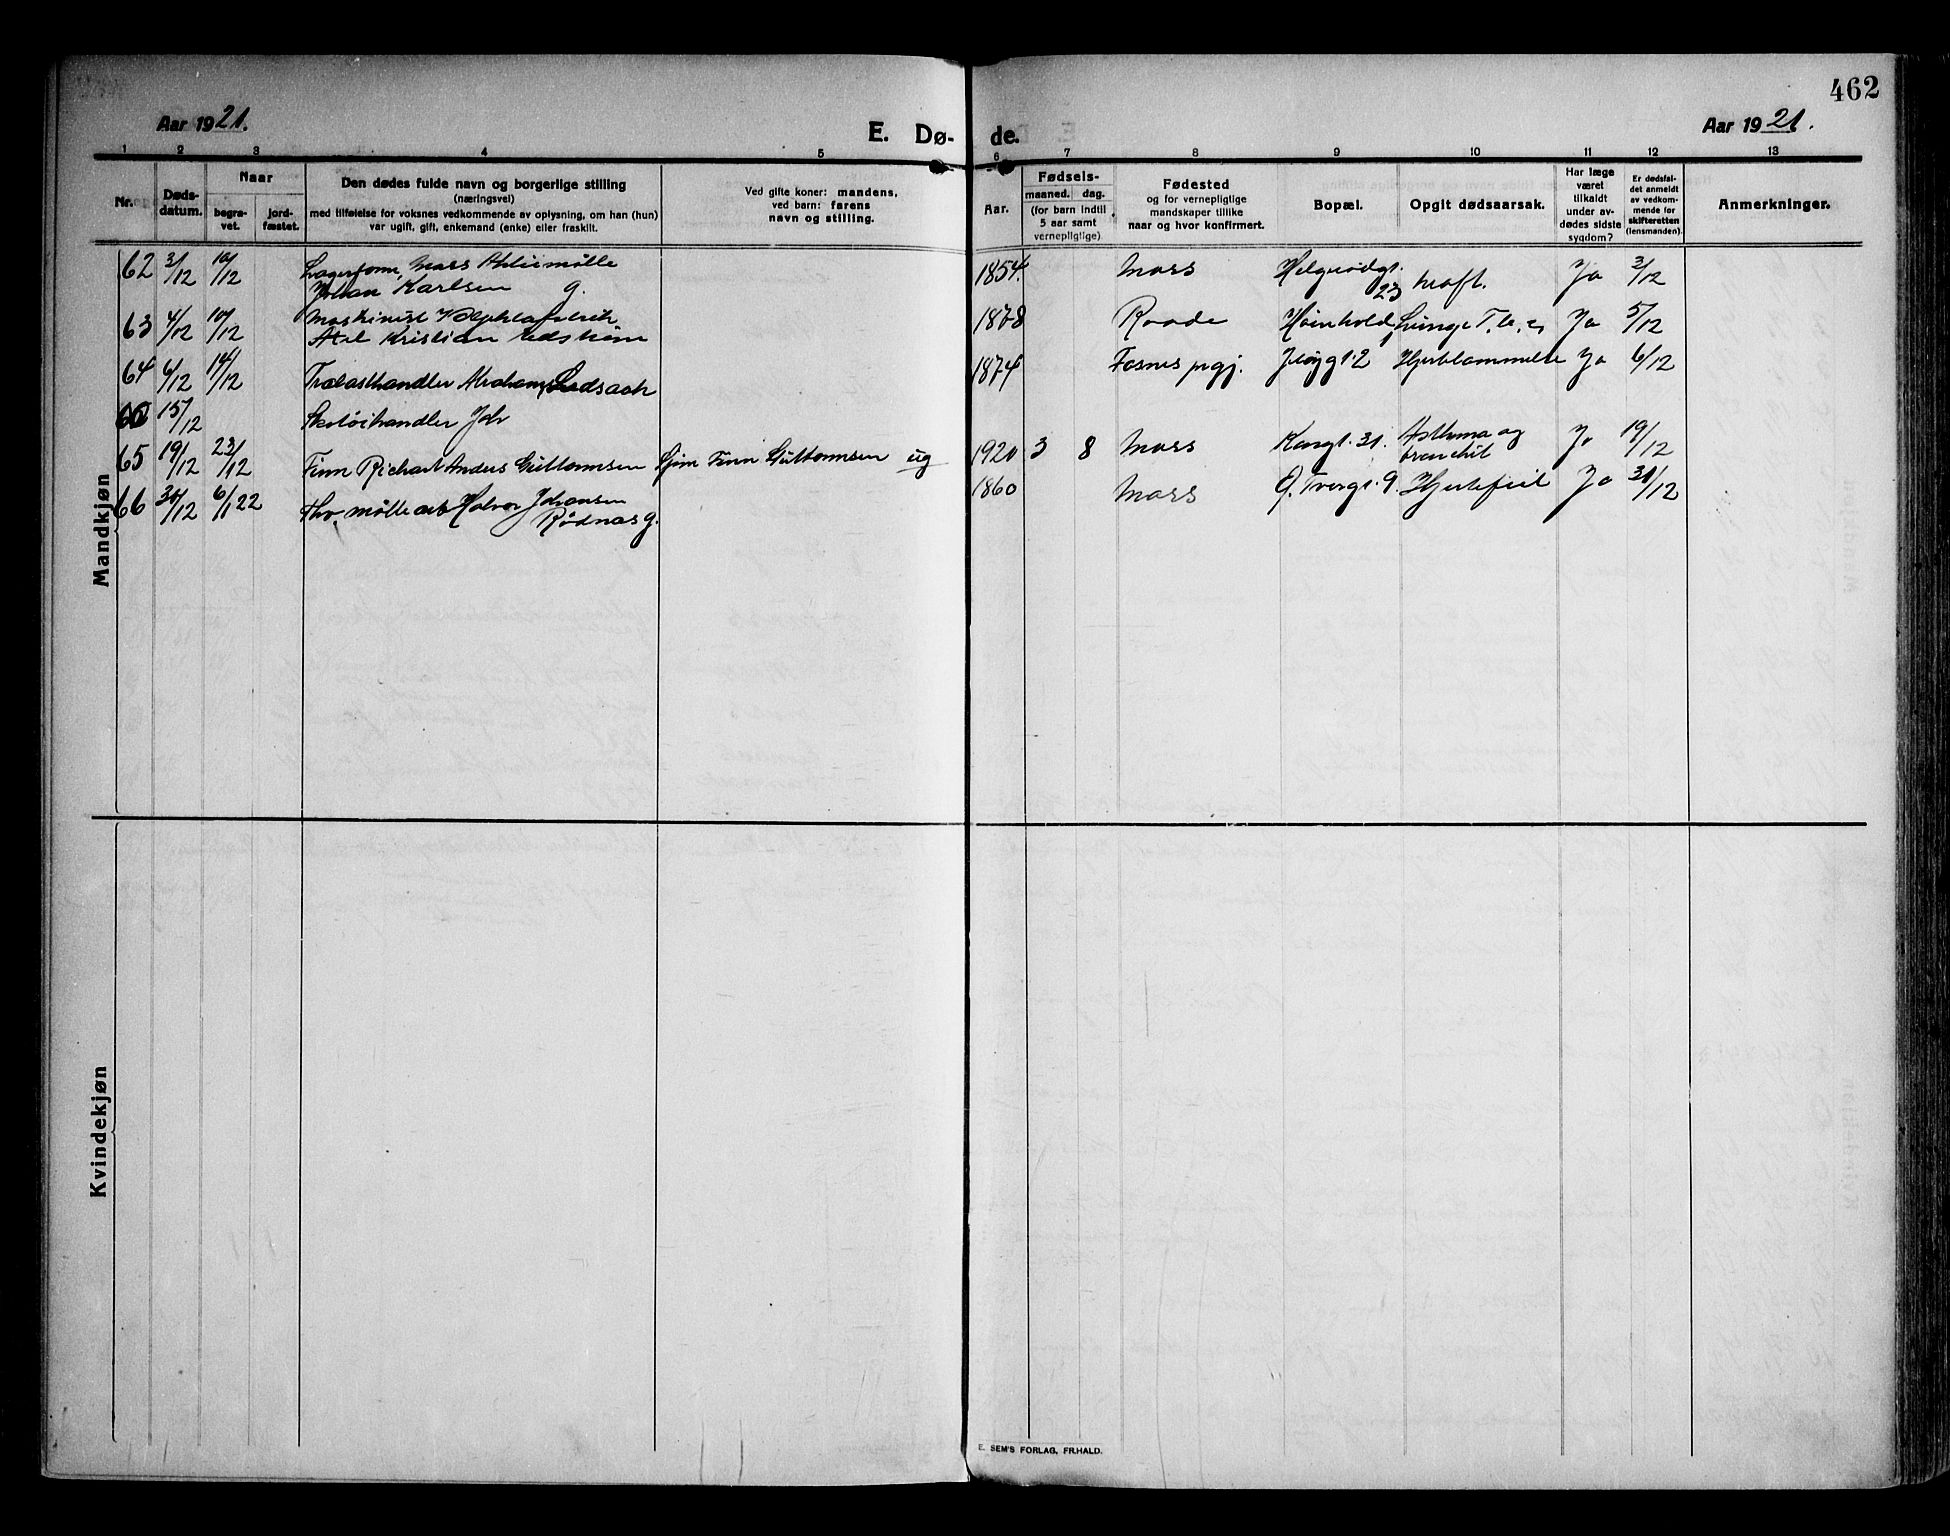 462
Aar 1921.
E. Dø-
de.
Aar 1921.
1 2 3 4 5 6 7 8 9 10 11 12 13
Nr.
Døds-
datum.
Naar
begra-
vet.
jord-
fæstet.
Den dødes fulde navn og borgerlige stilling
(næringsvei)
med tilføielse for voksnes vedkommende av oplysning, om han (hun)
var ugift, gift, enkemand (enke) eller fraskilt.
Ved gifte koner: mandens,
ved barn: farens
navn og stilling.
Aar.
Fødsels-
maaned. dag.
(for barn indtil
5 aar samt
vernepligtige)
Fødested
og for vernepligtige
mandskaper tillike
naar og hvor konfirmert.
Bopæl.
Opgit dødsaarsak.
Har læge
været
tilkaldt
under av-
dødes sidste
sygdom?
Er dødsfal-
det anmeldt
av vedkom-
mende for
skifteretten
(lensmanden).
Anmerkninger.
Mandkjøn
62 3/12 10/12 Lagerform. Moss Aktiemølle 1854. Moss Ja 3/12
Johan Karlsen g. 23 kræft.
63 4/12 10/12 Maskinist 1878 Raade Lunge Ja 5/12
Axel Kristian
64 6/12 14/12 Trælasthandler Abraham 1874 Fosnes prgj. Ja 6/12
15/12 Skotøihandler Joh
65 19/12 23/12 Finn Richart Anders Guttormsen Finn Guttormsen ug 1920 3 8 Moss Kongt. 31. Asthma og Ja 19/12
bronchit
66 30/12 6/1 22 mølle arb Halvor Johansen 1860 Moss Ø. Tvergt. 9. Hjertefeil Ja 31/12
Rødnæs g.
Kvindekjøn
E. SEM'S FORLAG, FR.HALD.